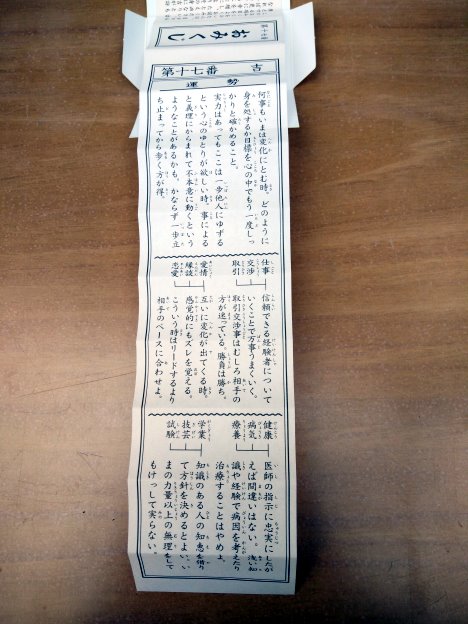 おみくじ
第十七番 吉
運勢
何事もいまは変化にとむ時。どのように
身を処するか目標を心の中でもう一度しっ
かりと確かめること。
実力はあってもここは一歩他人にゆずる
という心のゆとりが欲しい時。事による
と義理にからまれて不本意に動くという
ようなことがあるかも。かならず一歩立
ち止まってから歩く方が得。
仕事
交渉
取引
信頼できる経験者について
いくことで万事うまくいく。
取引交渉事はむしろ相手の
方が迷っている。勝負は勝ち。
愛情
縁談
恋愛
互いに変化が出てくる時。
感覚的にもズレを覚える。
こういう時はリードするより
相手のペースに合わせよ。
健康
病気
療養
医師の指示に忠実にしたが
えば間違いはない。浅い知
識や経験で病因を考えたり
治療することはやめよ。
学業
技芸
試験
知識のある人の知恵を借り
て方針を決めるとよい。い
まの力量以上の無理をして
もけっして実らない。